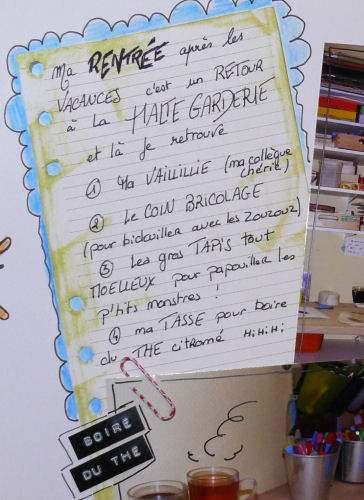 Ma RENTRÉE après les
VACANCES c'est un RETOUR
à la HALTE GARDERIE
et là je retrouve
① Ma VAILILLIE (ma collègue
chérie)
② Le COIN BRICOLAGE
(pour bidouiller avec les zouzouz)
③ Les gros TAPIS tout
MOELLEUX pour papouiller les
p'tits monstres !
④ ma TASSE pour boire
du THE citromé HiHiHi
BOIRE
DU THE